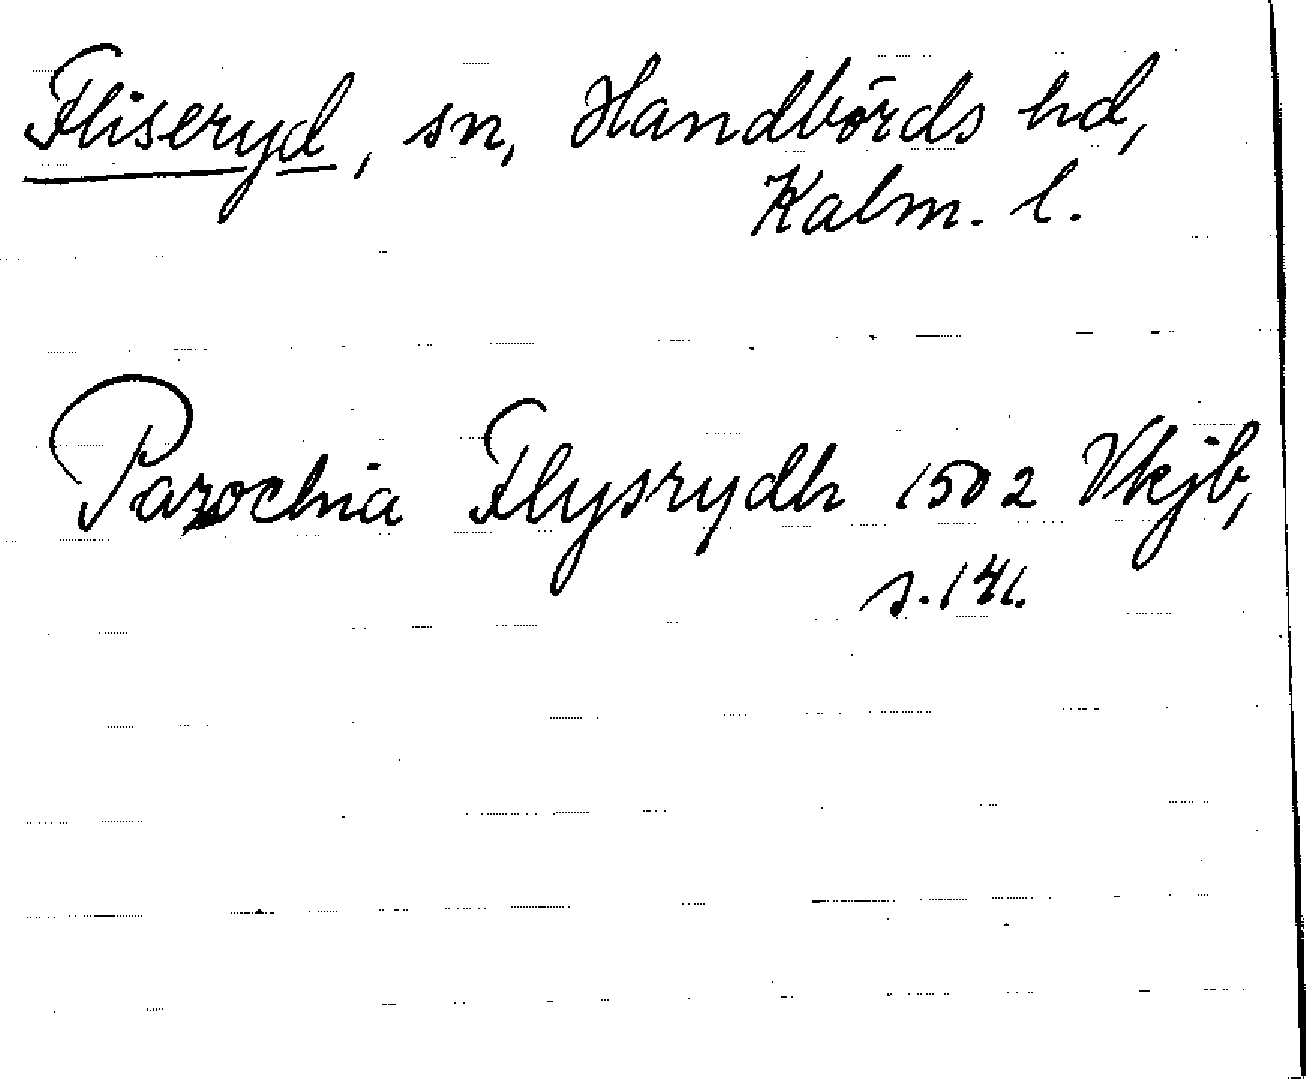 Fliseryd, sn, Handbörds hd,
Kalm. l.
Parochia Flysrydh 1502 Vkjb,
s. 141.